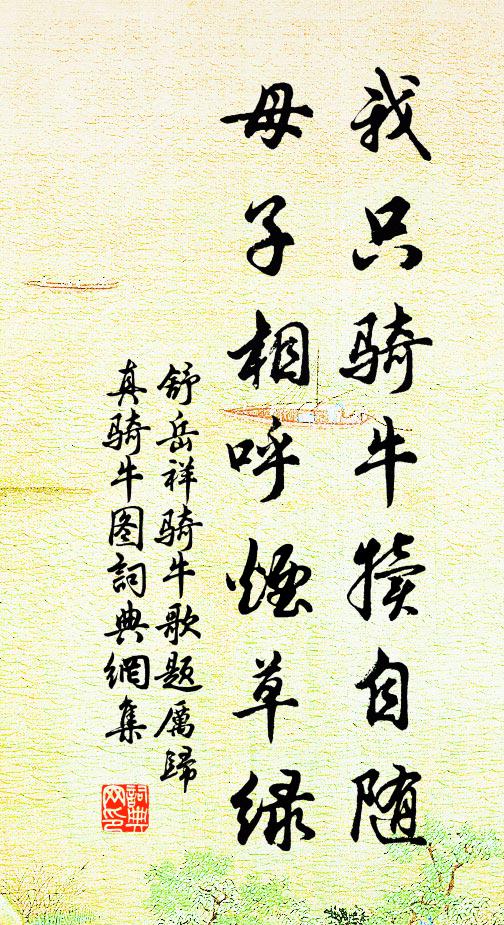 我只骑牛犊自随
母子相呼烟草绿
舒岳祥骑牛歌题厲歸
真骑牛图詞典網集
詞典
网印